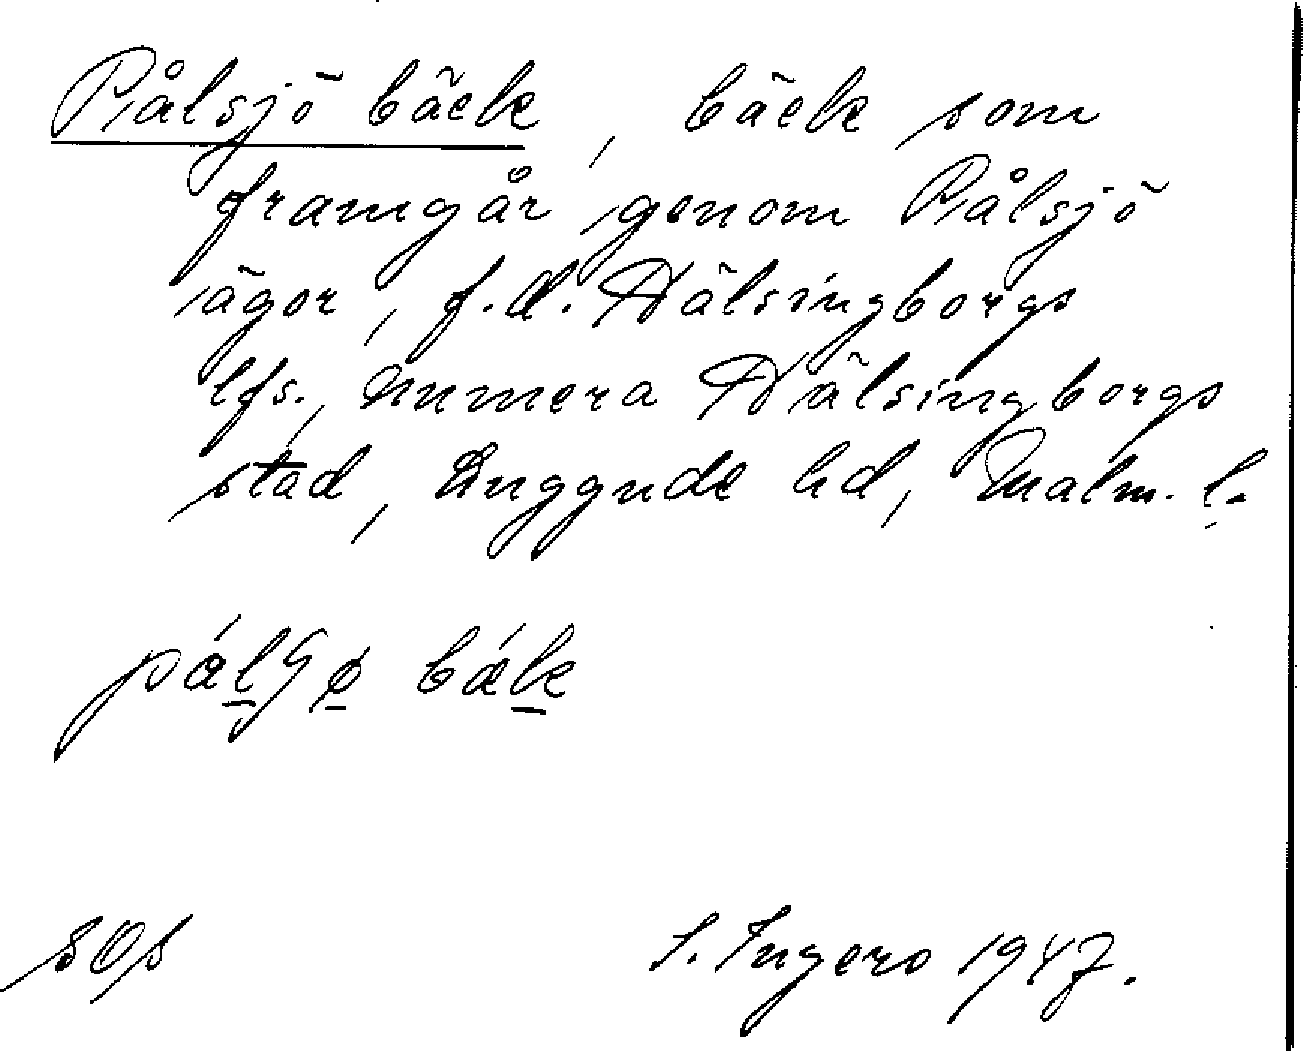 Pålsjö bäck, bäck som
framgår genom Pålsjö
ägor, f.d. Hälsingborgs
lfs., numera Hälsingborgs
stad, Luggude hd, Malm. l.
bäk
S. Ingers 1947.